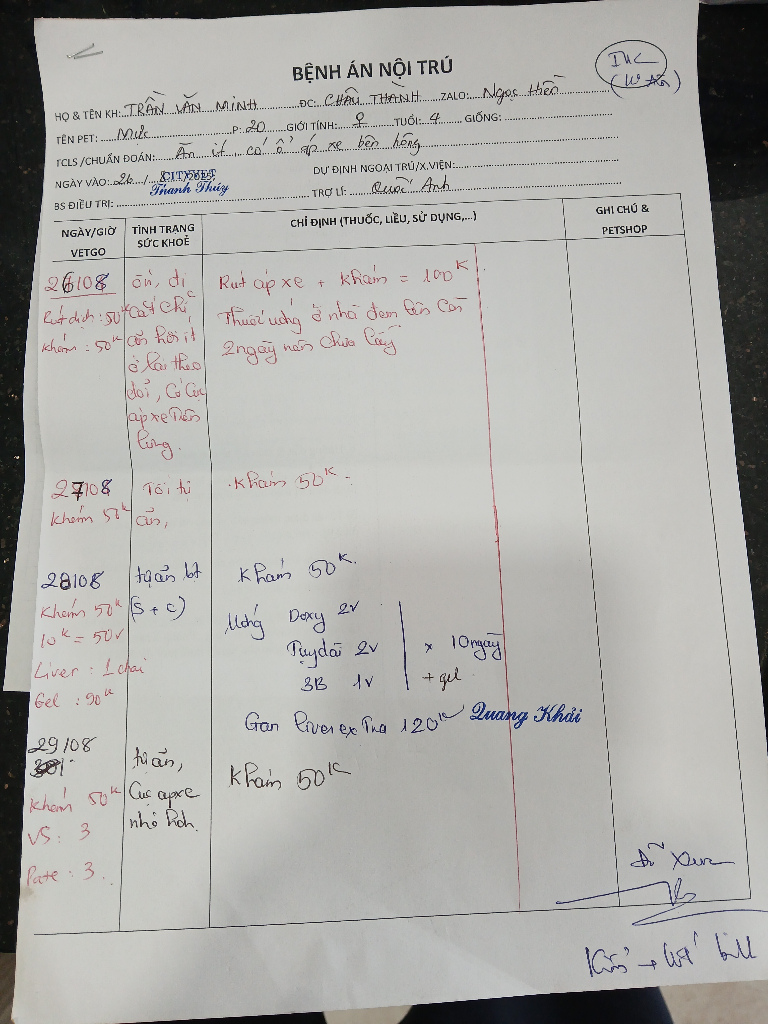 BỆNH ÁN NỘI TRÚ
HỌ & TÊN KH: TRẦN VĂN MINH ĐC: CHÂU THÀNH ZALO: Ngọc Hiền
TÊN PET: P: 20 GIỚI TÍNH: ♀ TUỔI: 4 GIỐNG:
TCLS /CHUẨN ĐOÁN: Ăn ít, có ổ áp xe bên hông
NGÀY VÀO: 26 / 8 DỰ ĐỊNH NGOẠI TRÚ/X.VIỆN:
CITYVET
BS ĐIỀU TRỊ: Thanh Thúy TRỢ LÍ: Quốc Anh
NGÀY/GIỜ VETGO
TÌNH TRẠNG SỨC KHOẺ
CHỈ ĐỊNH (THUỐC, LIỀU, SỬ DỤNG,...)
GHI CHÚ & PETSHOP
26/08
Rút dịch: 50K
Khám: 50K
ổn, đi
ăn hơi ít
ở lại theo
dõi, có cục
áp xe trên
lưng.
Rút áp xe + Khám = 100K
Thuốc uống ở nhà đem lên còn
2 ngày nên chưa lấy
27/08
Khám 50K
Tối tự
ăn,
Khám 50K
28/08
Khám 50K
10K = 50v
Liver: 1 chai
Gel: 90K
tự ăn bt
(S + C)
Khám 50K
Uống Doxy 2v
Tụy dài 2v
3B 1v
x 10 ngày
+ gel
Gan Liverextra 120K
Quang Khải
29/08
Khám 50K
VS: 3
Pate: 3
tự ăn,
Cục apxe
nhỏ hơn.
Khám 50K